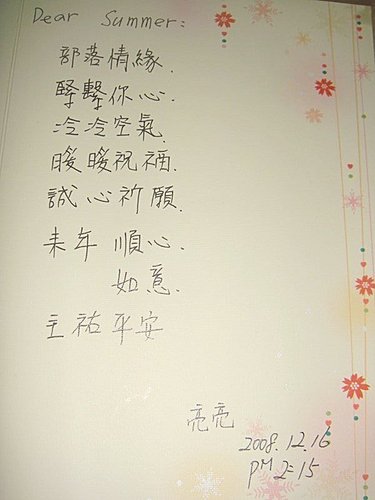 Dear Summer:
部落情緣.
緊繫你心.
冷冷空氣.
暖暖祝福.
誠心祈願.
未年 順心.
如意.
主祐平安
亮亮
2008.12.16
PM 2:15